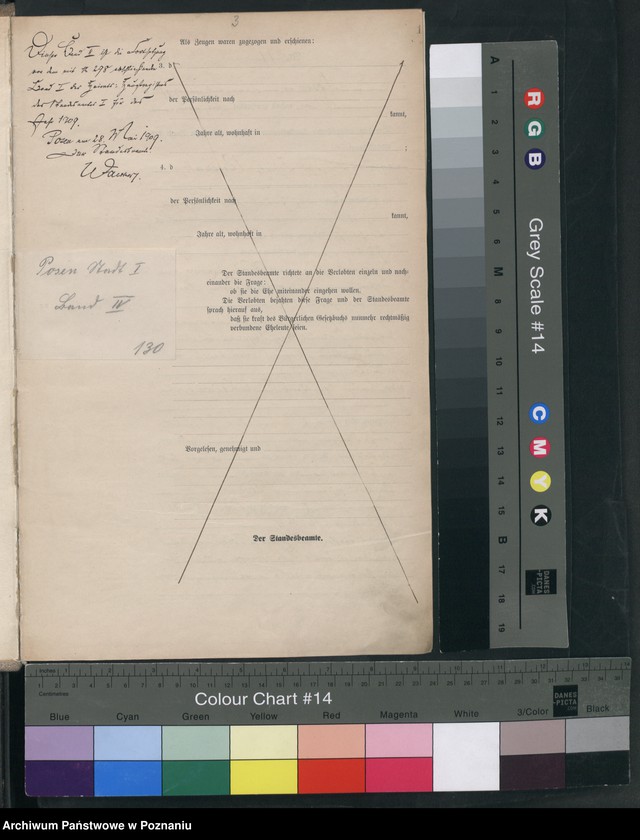 3
Als Zeugen waren zugezogen und erschienen:
Dieser Band I ist die Fortsetzung
3. d
Band I des Heirats-Hauptregisters
des Standesamts I für das
Jahr 1909.
Posen am 28. Mai 1909.
Der Standesbeamte
der Persönlichkeit nach
kannt,
Jahre alt, wohnhaft in
4. d
der Persönlichkeit nach
kannt,
Jahre alt, wohnhaft in
Posen Stadt I
Band IV
130
Der Standesbeamte richtete an die Verlobten einzeln und nach-
einander die Frage:
ob sie die Ehe miteinander eingehen wollen.
Die Verlobten bejahten diese Frage und der Standesbeamte
sprach hierauf aus,
daß sie kraft des Bürgerlichen Gesetzbuchs nunmehr rechtmäßig
verbundene Eheleute seien.
Vorgelesen, genehmigt und
Der Standesbeamte.
A 1 2 3 4 5 6 M 8 9 10 11 12 13 14 15 B 17 18 19
R G B
Grey Scale #14
C M Y K
DANES
-PICTA
.COM
Inches
Centimetres
Colour Chart #14
DANES
-PICTA
.COM
Blue Cyan Green Yellow Red Magenta White 3/Color Black
Archiwum Państwowe w Poznaniu